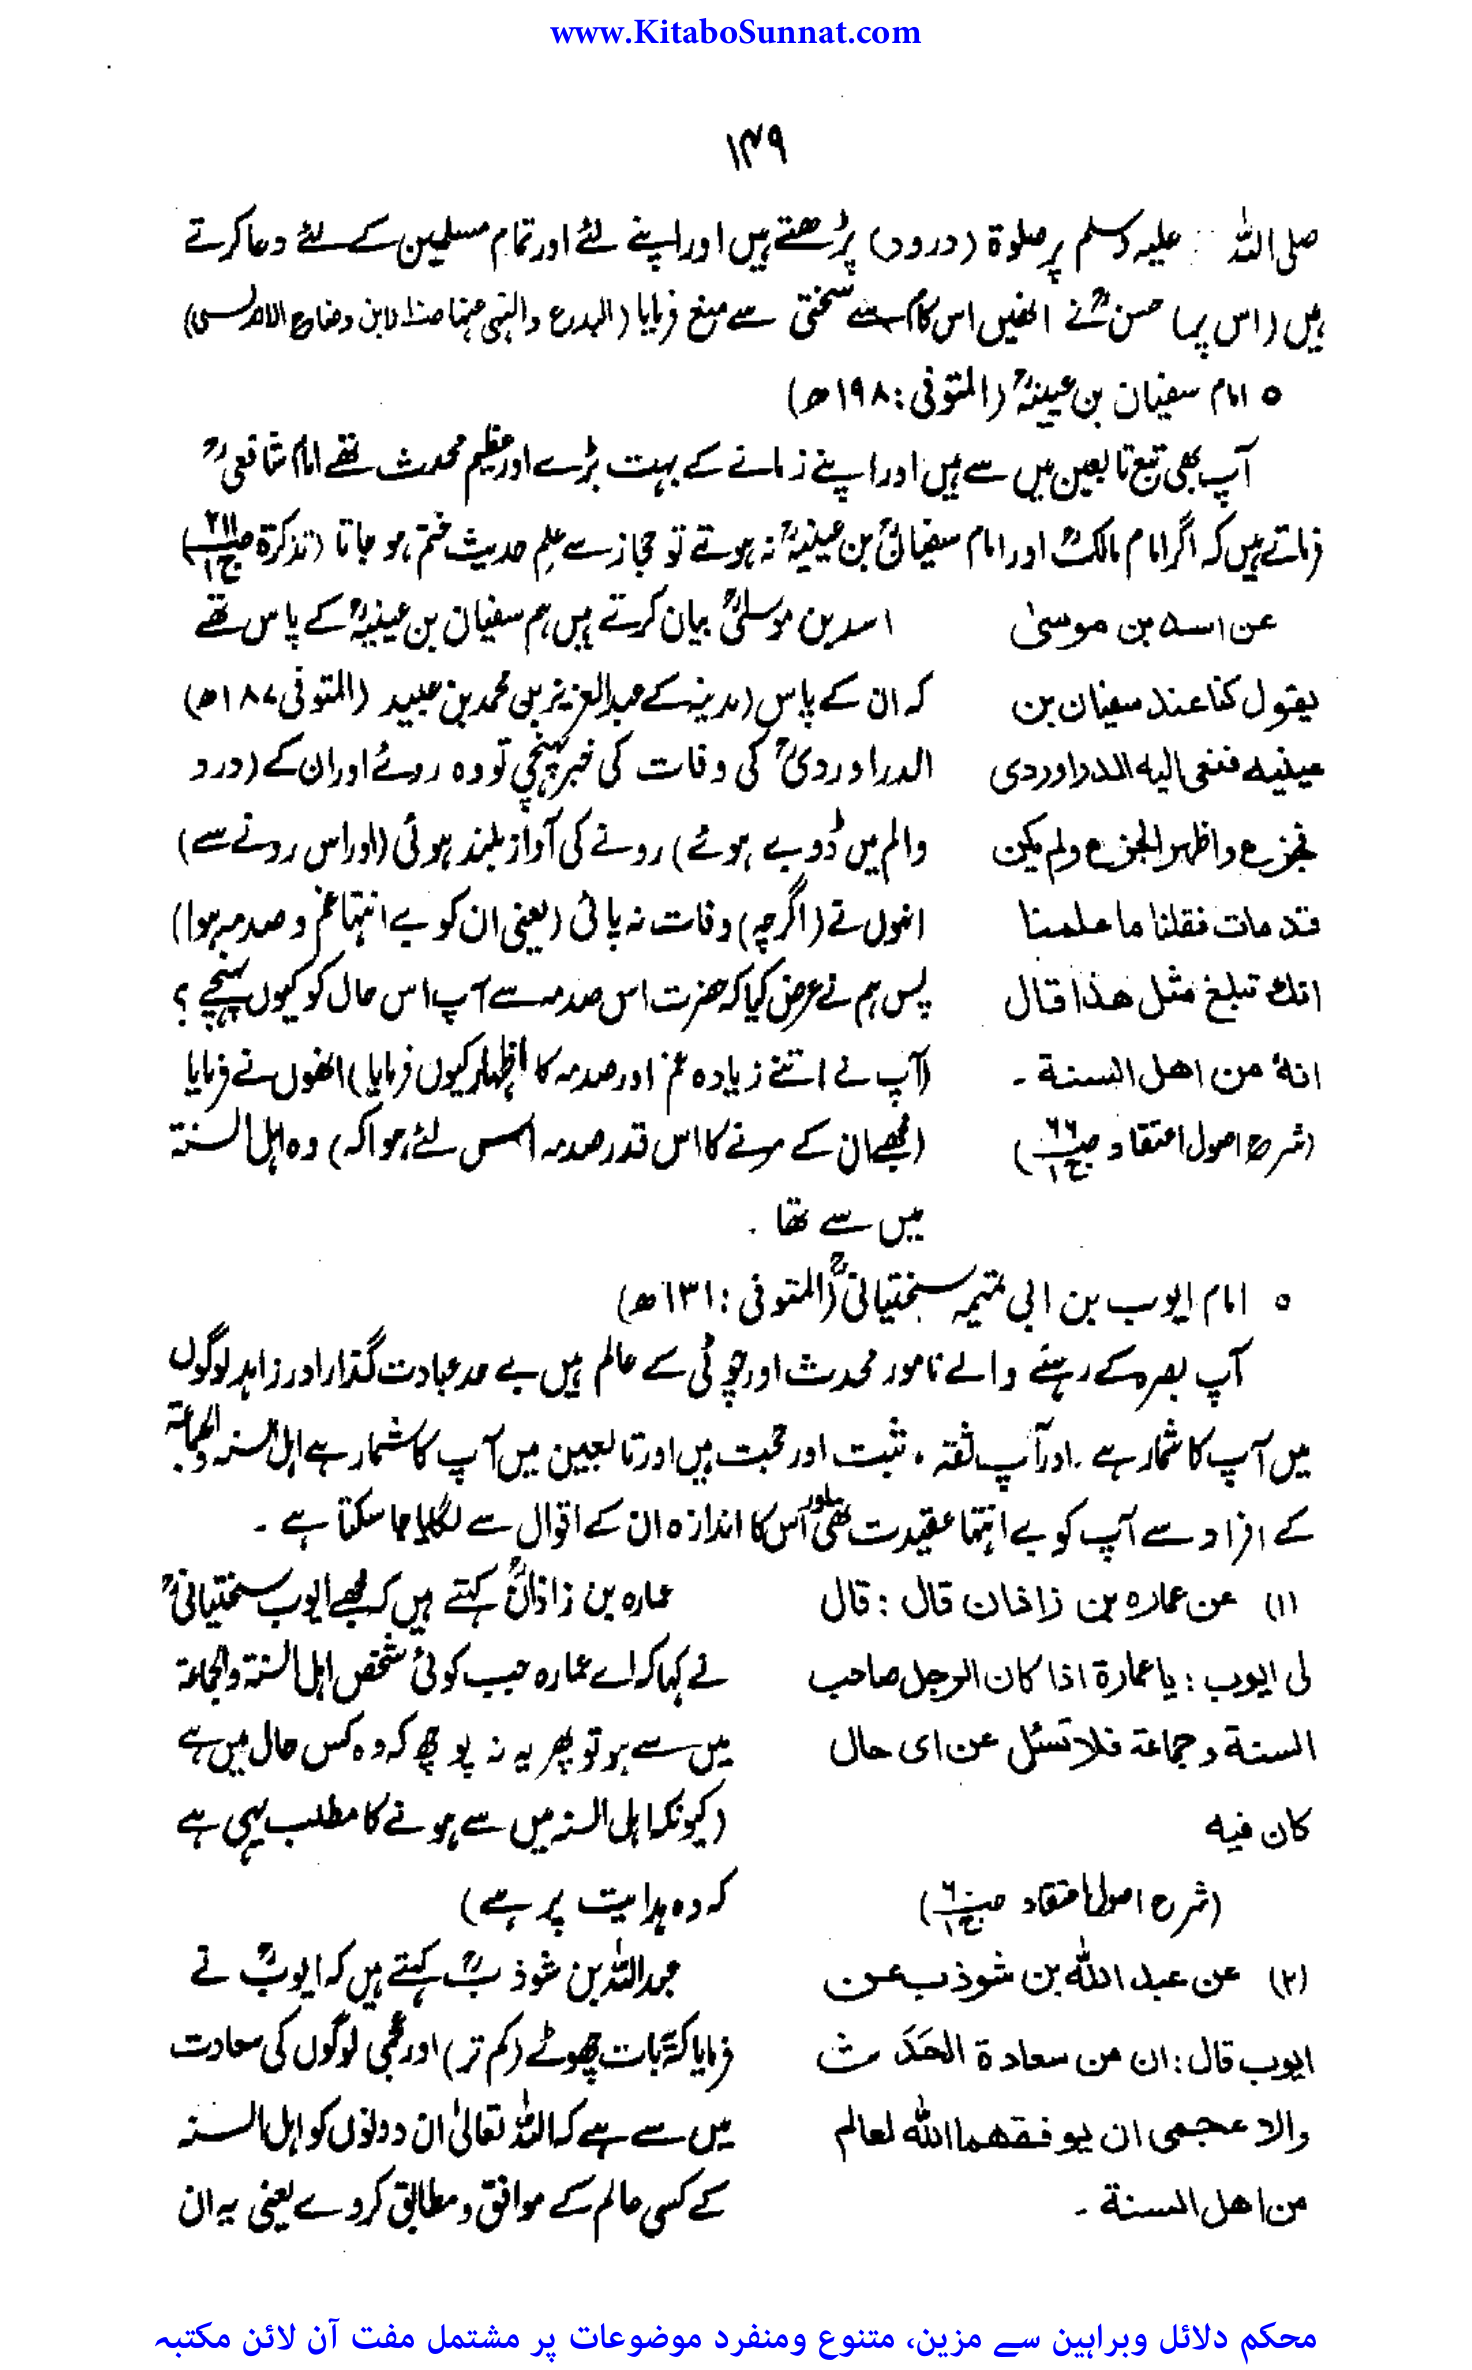 www.KitaboSunnat.com
۱۴۹
صلی اللہ علیہ وسلم پر صلوۃ (درود) پڑھتے ہیں اور اپنے لئے اور تمام مسلمین کے لئے دعا کرتے
ہیں (اس پر) حسنؒ نے انھیں اس کام سے سختی سے منع فرمایا (البدع والنہی عنہا لابن وضاح الاندلسی)
○ امام سفیان بن عیینہؒ (المتوفی : ۱۹۸ھ)
آپ بھی تبع تابعین میں سے ہیں اور اپنے زمانے کے بہت بڑے اور عظیم محدث تھے امام شافعیؒ
فرماتے ہیں کہ اگر امام مالکؒ اور امام سفیانؒ بن عیینہؒ نہ ہوتے تو حجاز سے علم حدیث ختم ہو جاتا (تذکرۃ ص ج۱)
عن اسد بن موسیٰ
یقول کنا عند سفیان بن
عینیہ فنعی الیہ الدراوردی
فجزع واظہر الجزع ولم یکن
قد مات فقلنا ما علمنا
انک تبلغ مثل ھذا قال
انہٗ من اھل السنة ۔
(شرح اصول اعتقاد ص۶۶ ج۱)
اسد بن موسیٰؒ بیان کرتے ہیں ہم سفیان بن عینیہؒ کے پاس تھے
کہ ان کے پاس (مدینہ کے عبدالعزیز بن محمد بن عبید (المتوفی ۱۸۷ھ)
الدراوردیؒ کی وفات کی خبر پہنچی تو وہ روئے اور ان کے (درد
والم میں ڈوبے ہوئے) رونے کی آواز بلند ہوئی (اور اس رونے سے)
انہوں نے (اگرچہ) وفات نہ پائی (یعنی ان کو بے انتہا غم و صدمہ ہوا)
پس ہم نے عرض کیا کہ حضرت اس صدمہ سے آپ اس حال کو کیوں پہنچے ؟
(آپ نے اتنے زیادہ غم اور صدمہ کا اظہار کیوں فرمایا) انھوں نے فرمایا
(مجھے ان کے مرنے کا اس قدر صدمہ اس لئے ہوا کہ) وہ اہل السنۃ
میں سے تھا ۔
○ امام ایوب بن ابی تمیمہ سختیانیؒ (المتوفی : ۱۳۱ھ)
آپ بصرہ کے رہنے والے نامور محدث اور چوٹی کے عالم ہیں بے حد عبادت گذار اور زاہد لوگوں
میں آپ کا شمار ہے ۔ اور آپ ثقہ ، ثبت اور حجت ہیں اور تابعین میں آپ کا شمار ہے اہل السنہ والجماعۃ
کے افراد سے آپ کو بے انتہا عقیدت تھی اور اس کا اندازہ ان کے اقوال سے لگایا جا سکتا ہے ۔
(۱) عن عمارہ بن زاذان قال : قال
لی ایوب : یا عمارة اذا کان الرجل صاحب
السنة وجماعة فلا تسئل عن ای حال
کان فیہ
(شرح اصول اعتقاد ص۶۰ ج۱)
عمارہ بن زاذانؒ کہتے ہیں کہ مجھے ایوب سختیانیؒ
نے کہا کہ اے عمارہ جب کوئی شخص اہل السنۃ والجماعۃ
میں سے ہو تو پھر یہ نہ پوچھ کہ وہ کس حال میں ہے
(کیونکہ اہل السنہ میں سے ہونے کا مطلب یہی ہے
کہ وہ ہدایت پر ہے)
(۲) عن عبد اللہ بن شوذب عن
ایوب قال : ان من سعادة الحَدَث
والاعجمی ان یوفقھما اللہ لعالم
من اھل السنة ۔
عبداللہ بن شوذبؒ کہتے ہیں کہ ایوبؒ نے
فرمایا کہ یہ بات چھوٹے (کم تر) اور عجمی لوگوں کی سعادت
میں سے ہے کہ اللہ تعالیٰ ان دونوں کو اہل السنہ
کے کسی عالم کے موافق و مطابق کردے یعنی یہ ان
محکم دلائل وبراہین سے مزین، متنوع ومنفرد موضوعات پر مشتمل مفت آن لائن مکتبہ